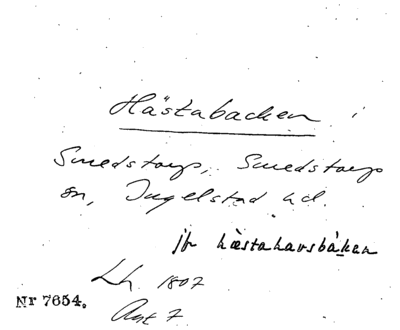 Hästabacken
Smedstorps, Smedstorps
sn, Ingelstad hd.
jfr hæstahavsbàkan
Lh. 1807
Avt 7
Nr 7654.